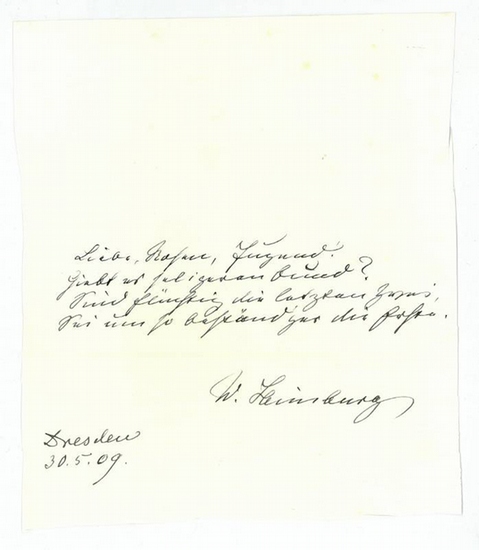 Liebe, Rosen, Jugend!
Giebt es seligeren Bund?
Sind flüchtig die letzten Zwei,
Sei um so beständ'ger die Erste.
W. Heimburg
Dresden
30.5.09.